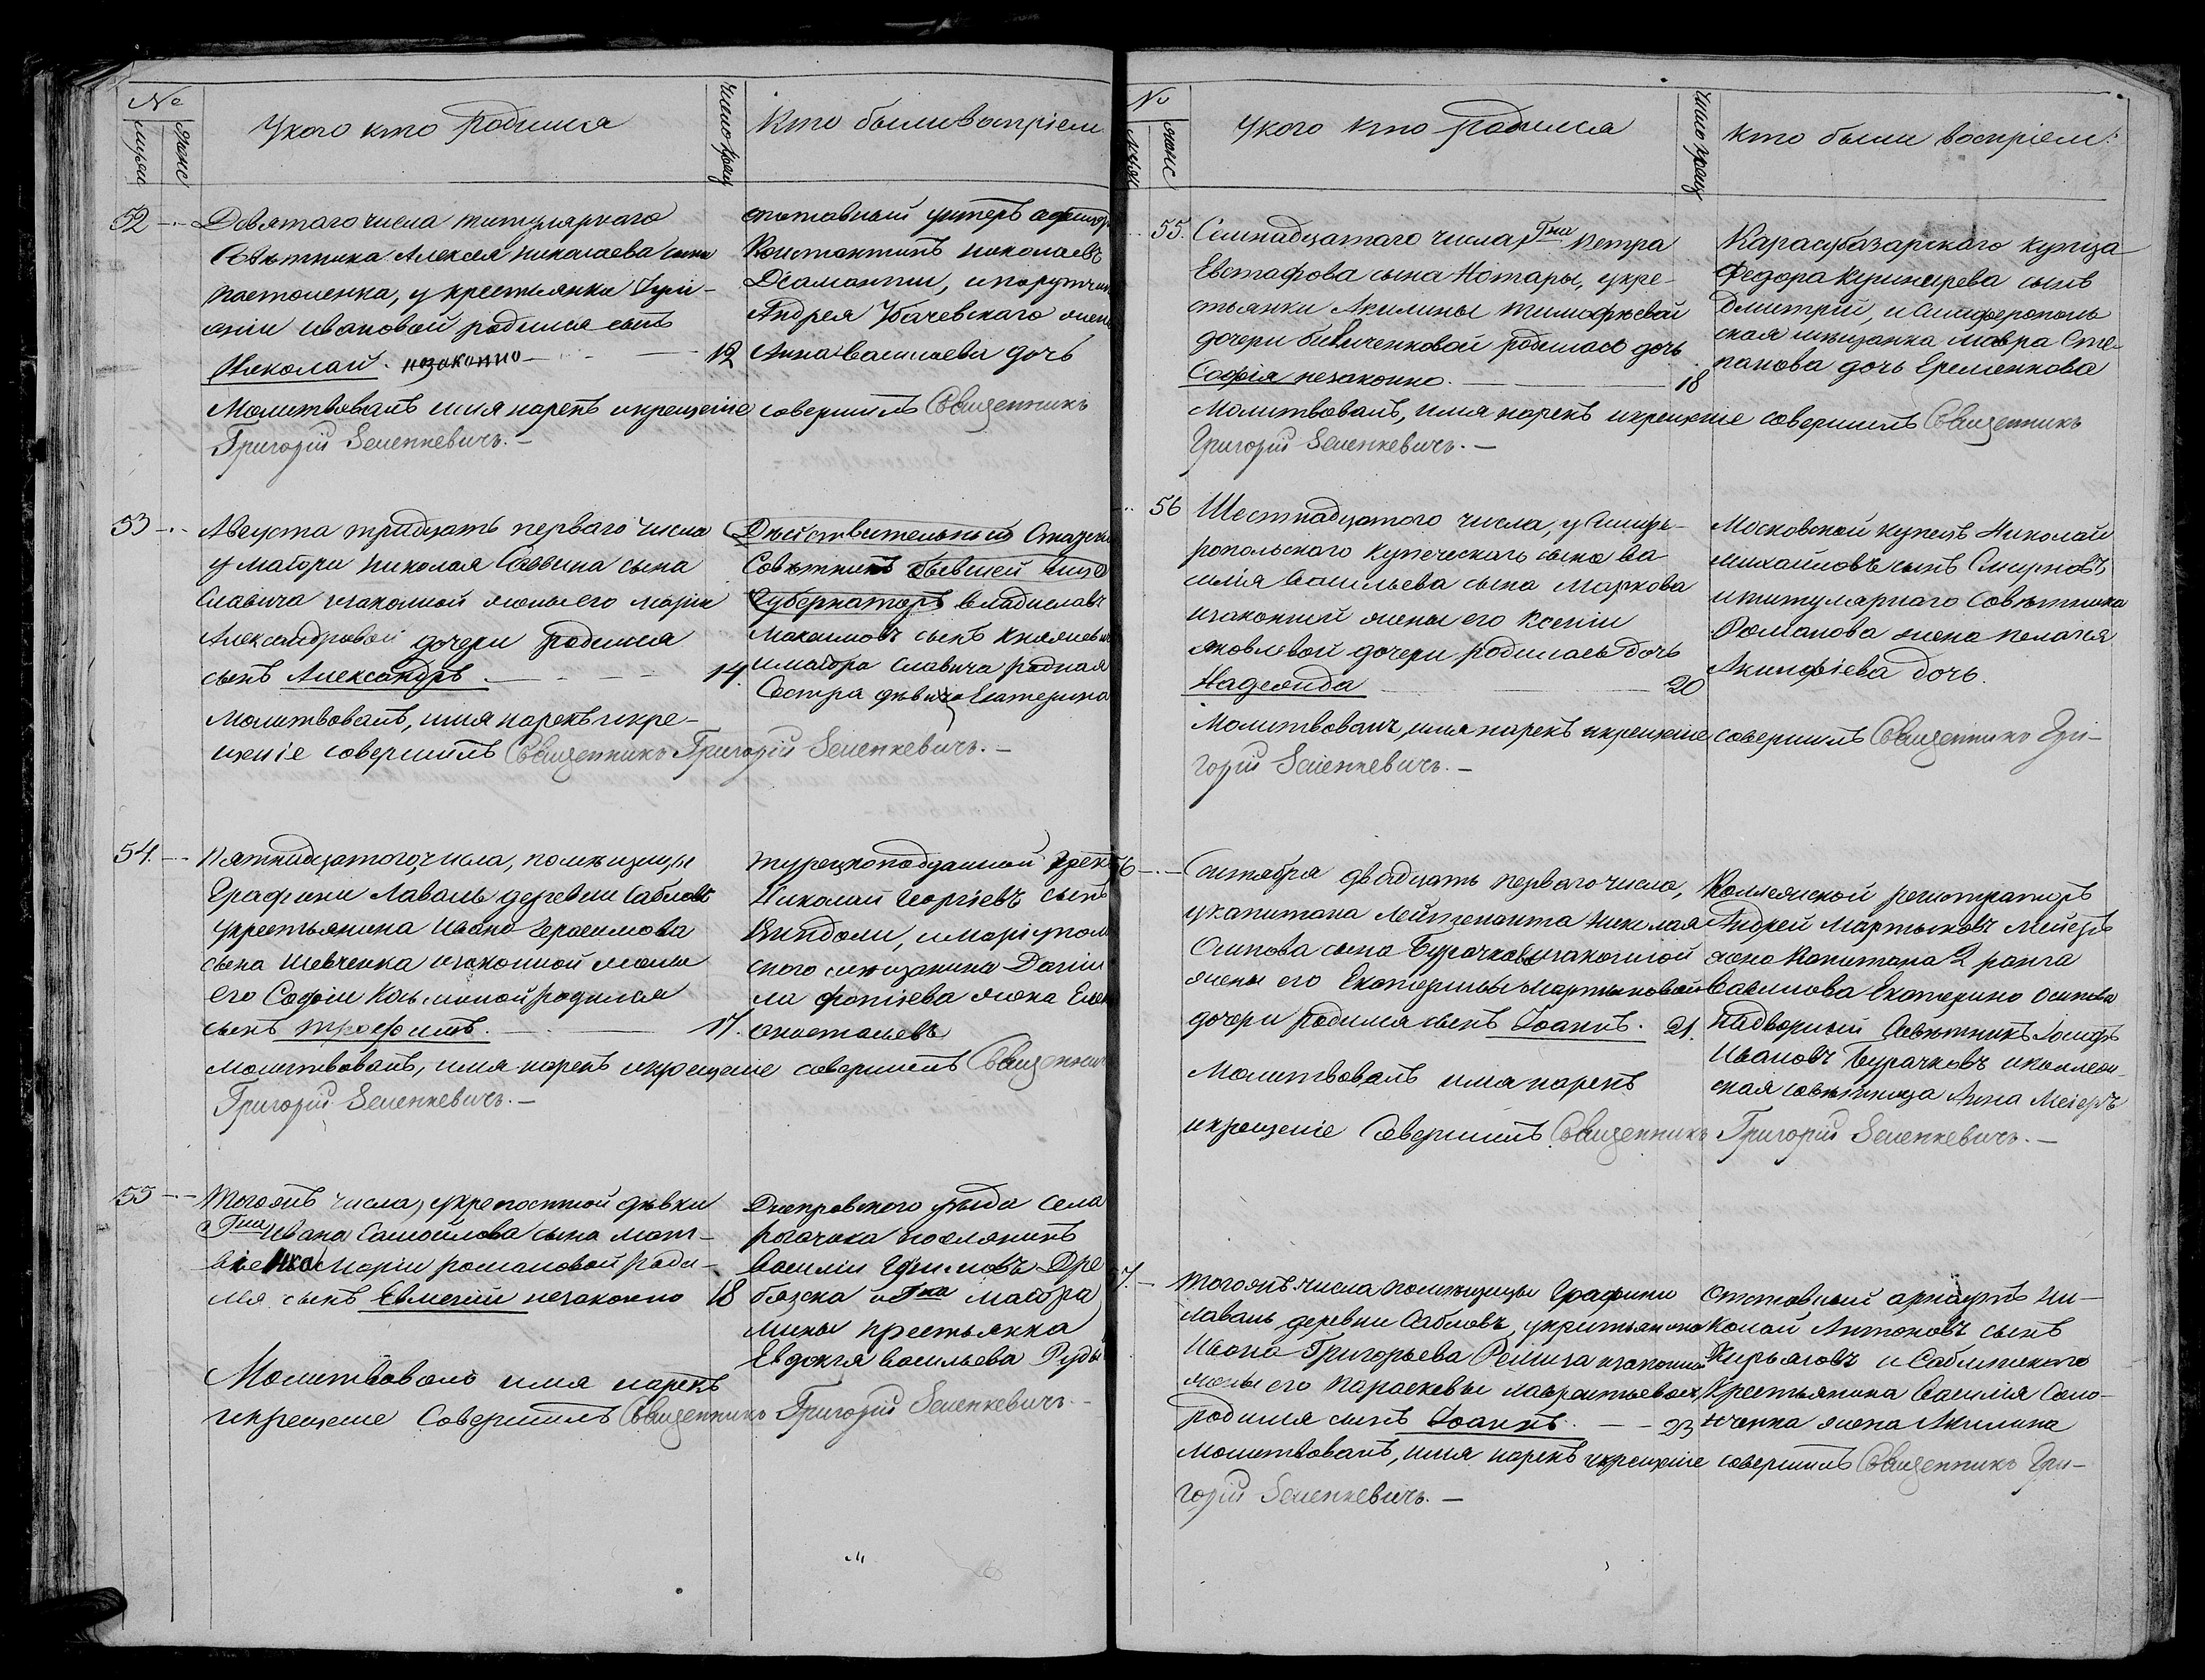 №
мужс
женс
У кого кто родился
число крещ
Кто были воспріем.
52
Девятаго числа титулярнаго
Совѣтника Алексея Николаева сына
настоленка, у крестьянки
Ивановой родился сынъ
Николай. незаконно 12
отставный унтеръ офицеръ
Константинъ Николаевъ
Діаманти, и порутчика
Андрея Бачевскаго жена
Анна Васильева дочь
Молитвовалъ имя нарекъ и крещеніе совершилъ Священникъ
Григорій Зеленкевичъ.
53
Августа тридцать перваго числа
у маіора Николая Саввина сына
Славича и законной жены его Маріи
Александровой дочери родился
сынъ Александръ. 14.
Дѣйствительный Статскій
Совѣтникъ бывшей вице
Губернаторъ Владиславъ
Максимовъ сынъ Княжевичъ
и маіора Славича родная
Сестра дѣвица Екатерина
Молитвовалъ, имя нарекъ и кре-
щеніе совершилъ Священникъ Григорій Зеленкевичъ.
54.
Пятнадцатого числа, помѣщицы
Графини Лаваль деревни Сабловъ
у крестьянина Ивана Герасимова
сына Шевченка и законной жены
его Софіи Косьминой родился
сынъ Трофимъ. 17.
турецкоподданный грекъ
Николай Георгіевъ сынъ
Киндоли, и маріупол
скаго мѣщанина Дании
ла Фотіева жена Елен
Анастасьева
Молитвовалъ, имя нарекъ и крещеніе совершилъ Священникъ
Григорій Зеленкевичъ.
55
Тогожъ числа, у крепостной дѣвки
Гна Ивана Самойлова сына Мат-
віенка Маріи Романовой роди-
лся сынъ Евмений незаконно 18
Днепровскаго уѣзда села
рогачика поселянинъ
Василій Ефимовъ Дре
бязка и Гна Маіора
мины крестьянка
Евдокія Васильева Руды
Молитвовалъ имя нарекъ
и крещеніе совершилъ Священникъ Григорій Зеленкевичъ.
№
мужс
женс
У кого кто родился
число крещ
Кто были воспріем:
55.
Семнадцатаго числа, Гна Петра
Евстафова сына Нотары, у кре-
стьянки Акилины Тимофѣевой
дочери Биличенковой родилась дочь
Софія незаконно. 18
Карасубазарскаго купца
Федора Кушнырева сынъ
Дмитрій, и Симферополь
ская мѣщанка Мавра Сте-
панова дочь Еременкова
Молитвовалъ, имя нарекъ и крещеніе совершилъ Священникъ
Григорій Зеленкевичъ.
56
Шестнадцатого числа, у Симфе-
ропольскаго купеческаго сына Ва-
силія Васильева сына Маркова
и законной жены его Ксеніи
Яковлевой дочери, родилась дочь
Надежда 20
Московской купецъ Николай
Михайловъ сынъ Смирновъ
и титулярнаго Совѣтника
Романова жена Пелагея
Акинфіева дочь.
Молитвовалъ имя нарекъ и крещеніе совершилъ Священникъ Гри-
горій Зеленкевичъ.
56
Сентября двадцать перваго числа,
у капитана Лейтенанта Николая
Осипова сына Бурачкова и законной
жены его Екатерины Мартыновой
дочери родился сынъ Іоаннъ. 21.
Коллежской регистраторъ
Андрей Мартыновъ Мейеръ
жена Капитана 2 ранга
Савинова Екатерина Осипова
Надворный Совѣтникъ Іосифъ
Ивановъ Бурачковъ и коллеж-
ская совѣтница Анна Меіеръ
Молитвовалъ имя нарекъ
и крещеніе совершилъ Священникъ Григорій Зеленкевичъ.
57.
Тогожъ числа помѣщицы Графини
Лаваль деревни Сабловъ у крестьянина
Ивана Григорьева Ремиза и законной
жены его Параскевы Лаврентьевой
родился сынъ Іоаннъ. 23
Отставный арнаутъ Ни-
колай Антоновъ сынъ
Кирьяговъ и Саблинскаго
Крестьянина Василія Соло-
нченка жена Акилина
Молитвовалъ, имя нарекъ и крещеніе совершилъ Священникъ Гри-
горій Зеленкевичъ.